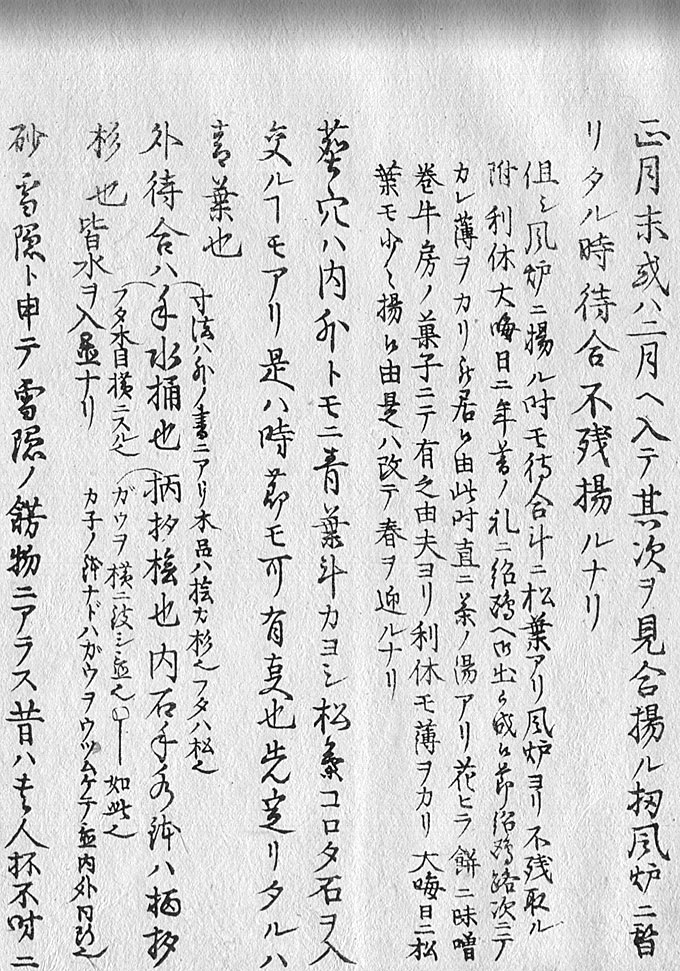 正月末或ハ二月ヘ入テ其次ヲ見合揚ル扨風炉ニ暫
リタル時待合不残揚ルナリ
但シ風炉ニ揚ル時モ待合斗ニ松葉アリ風炉ヨリ不残取ル
附利休大晦日ニ年暮ノ礼ニ紹鴎ヘ出ラ成候節紹鴎路次ニテ
カレ薄ヲカリ居候由此時直ニ茶ノ湯アリ花ヒラ餅ニ味噌
巻牛房ノ菓子ニテ有之由夫ヨリ利休モ薄ヲカリ大晦日ニ松
葉モ少々揚候由是ハ改テ春ヲ迎ルナリ
塵穴ハ内外トモニ青葉斗カヨシ松葉コロタ石ヲ入
交ルヿモアリ是ハ時節モ可有事也先定リタルハ
青葉也
寸法ハ外ノ書ニアリ木品ハ桧カ杉也フタハ松也
外待合ハ手水桶也柄杓桧也内石手水鉢ハ柄杓
フタ木目横ニスル也 ガウヲ横ニ伏シ置也 如此也
杉也皆水ヲ入置ナリ
カ子ノ鉢ナドハガウヲウツムケテ置内外同断也
砂雪隠ト申テ雪隠ノ餝物ニアラス昔ハ貴人抔不時ニ